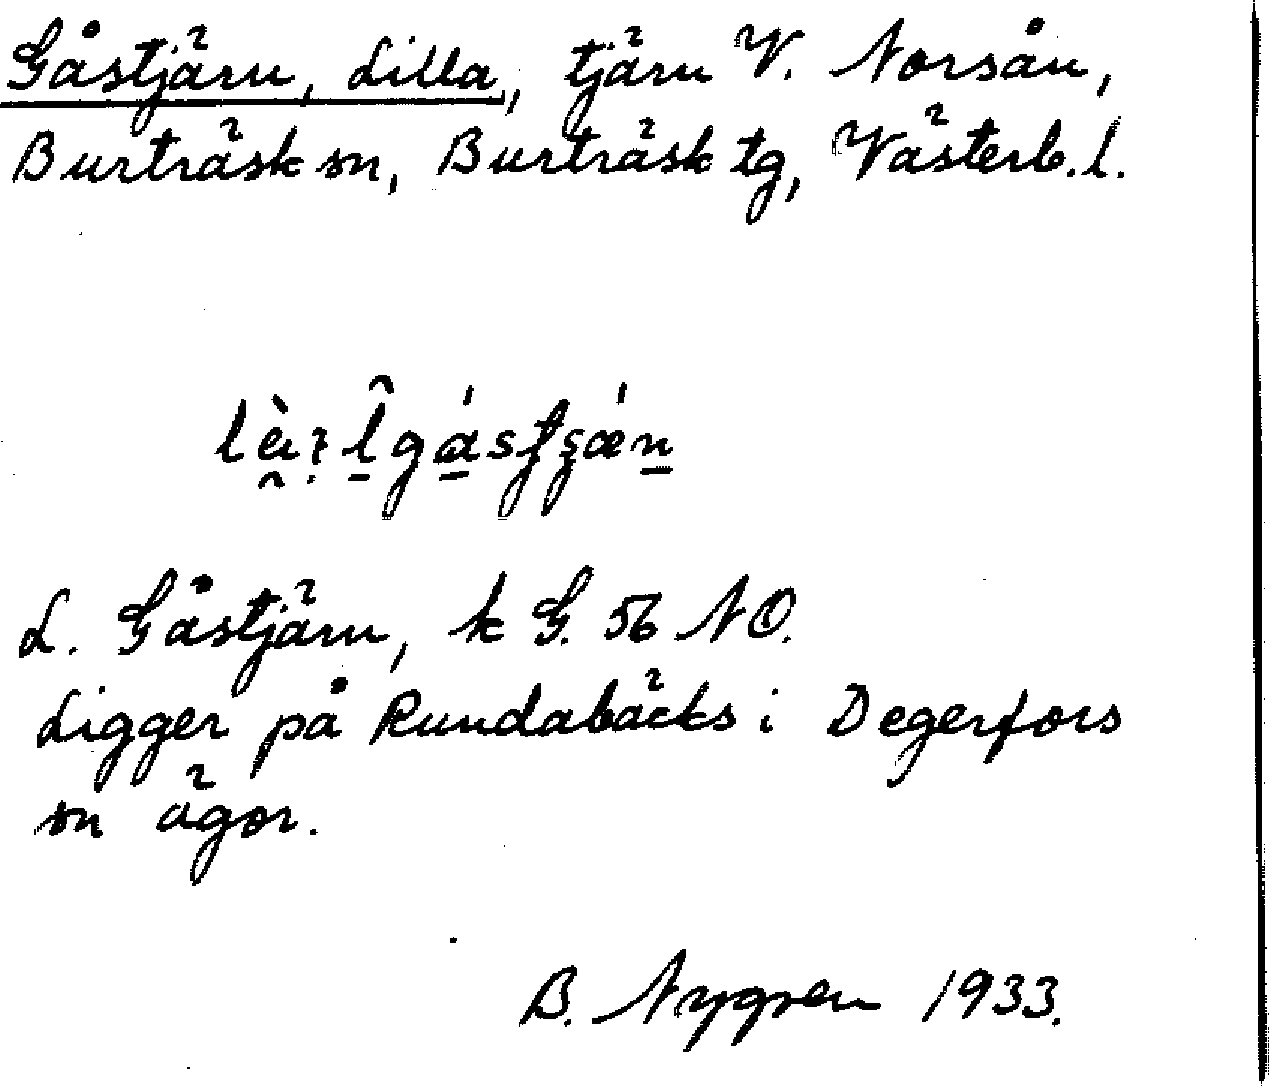 Gåstjärn, Lilla, tjärn V. Norsån,
Burträsk sn, Burträsk tg, Västerb. l.
L. Gåstjärn, k G. 56 NO.
Ligger på Rundabäcks i Degerfors
sn ägor.
B. Nygren 1933.